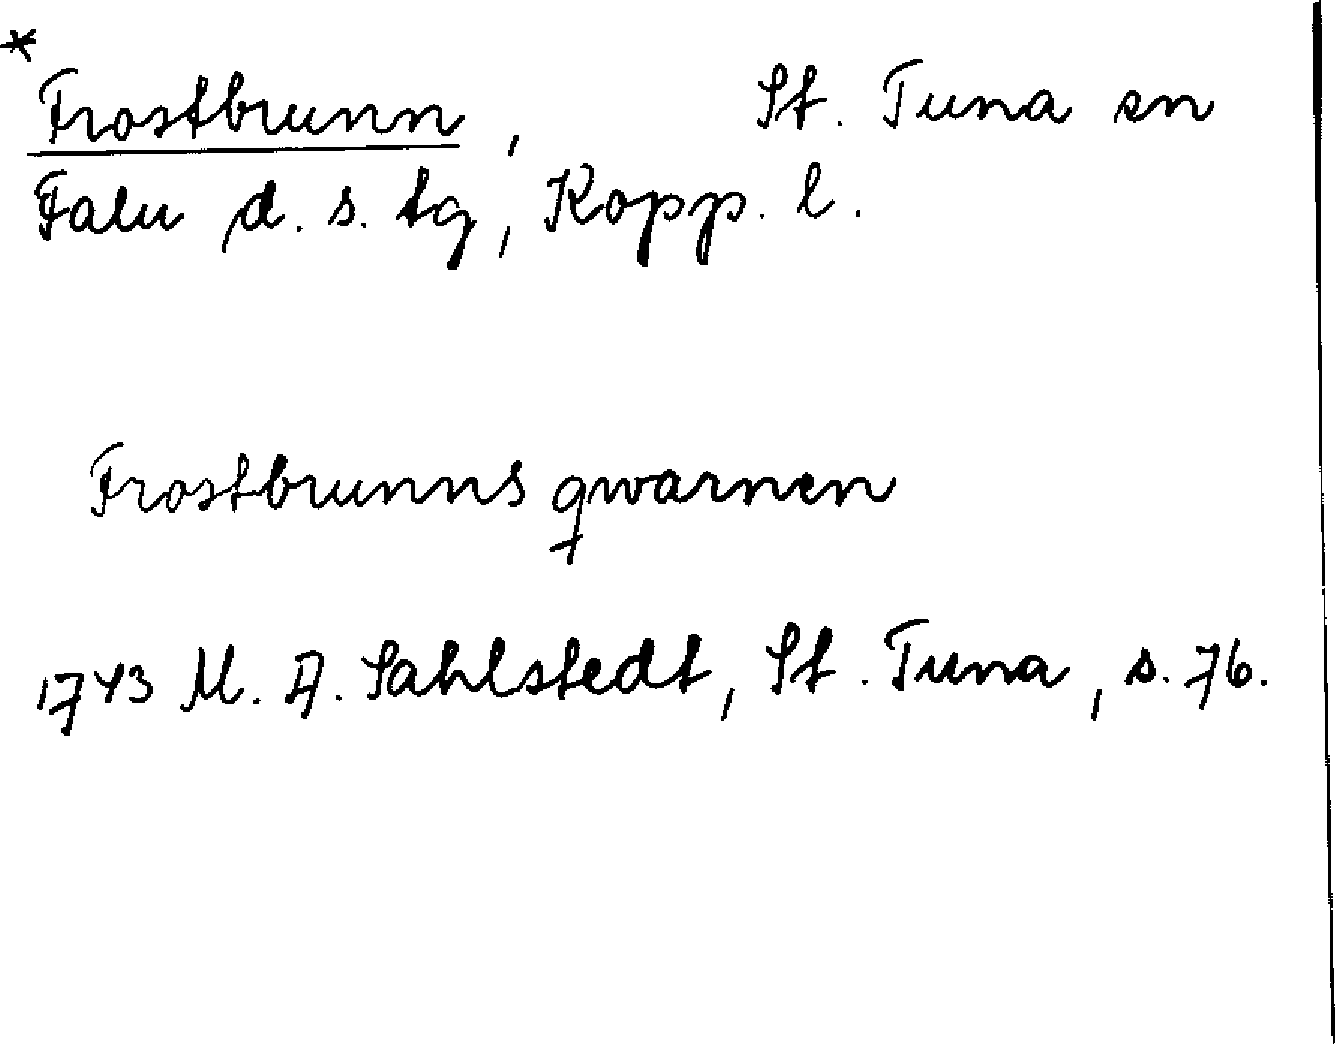 * Frostbrunn, St. Tuna sn
Falu d. s. tg, Kopp. l.
Frostbrunns qwarnen
1743 M. A. Sahlstedt, St. Tuna, s. 76.